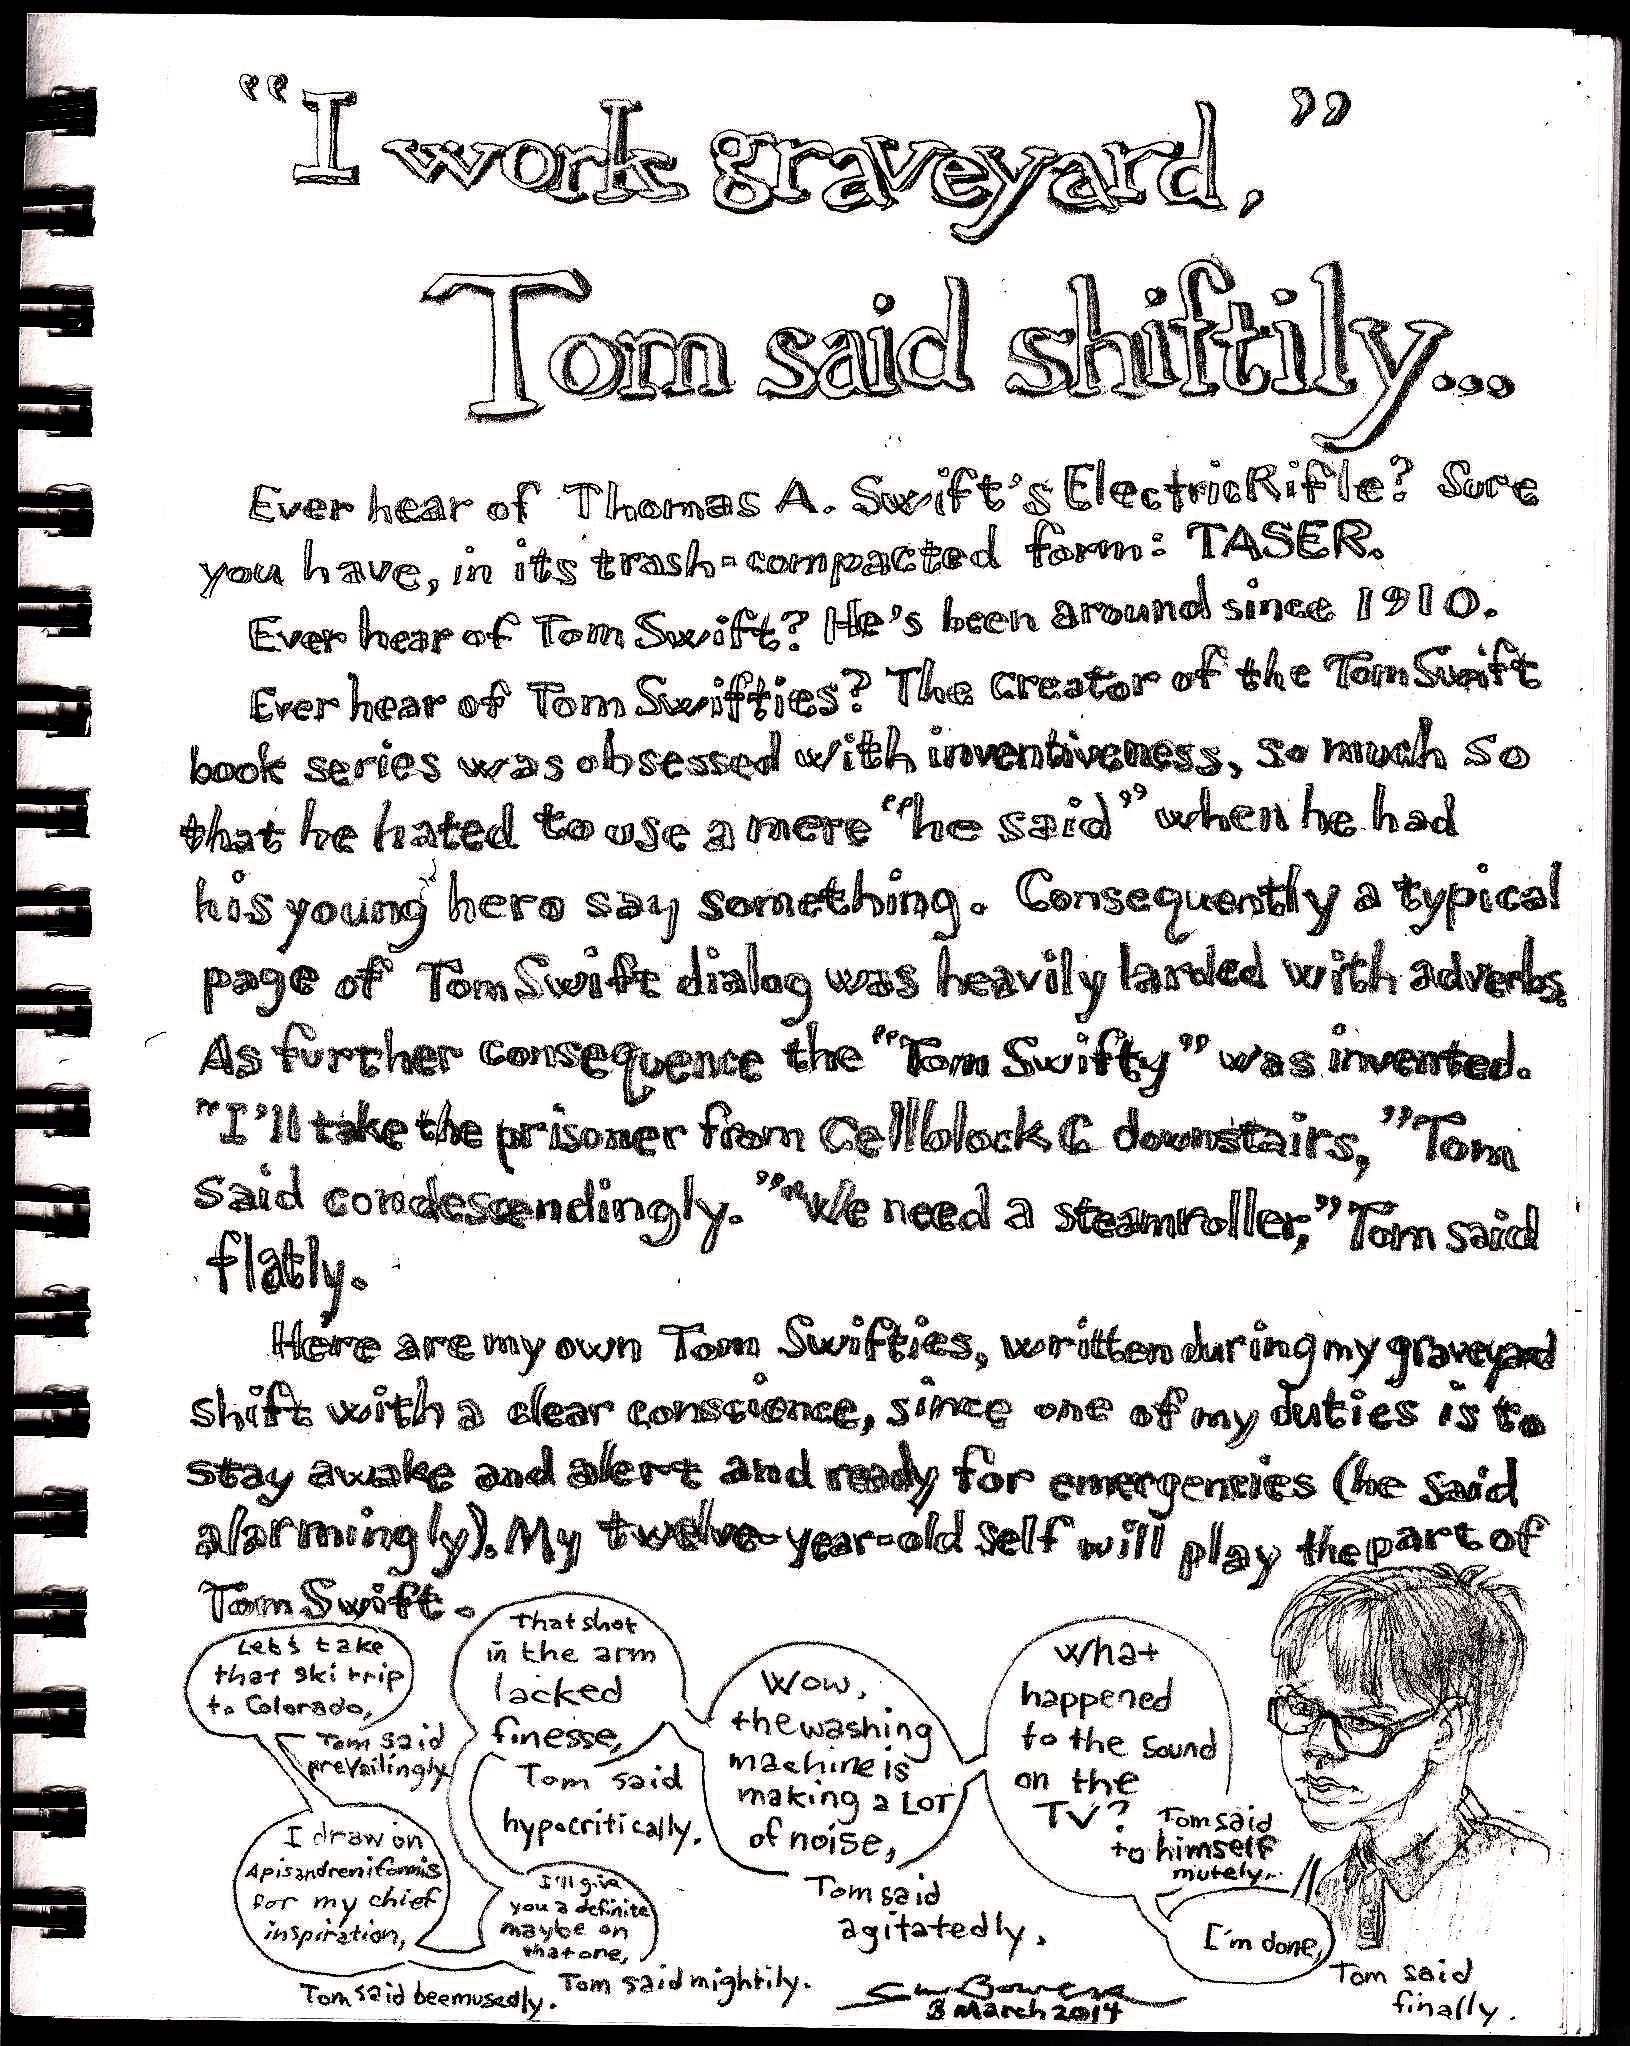 “I work graveyard,”
Tom said shiftily...
Ever hear of Thomas A. Swift's Electric Rifle? Sure
you have, in its trash-compacted form: TASER.
Ever hear of Tom Swift? He's been around since 1910.
Ever hear of Tom Swifties? The creator of the Tom Swift
book series was obsessed with inventiveness, so much so
that he hated to use a mere “he said” when he had
his young hero say something. Consequently a typical
page of Tom Swift dialog was heavily larded with adverbs.
As further consequence the “Tom Swifty” was invented.
“I'll take the prisoner from Cellblock C downstairs,” Tom
said condescendingly. ” “We need a steamroller,” Tom said
flatly.
Here are my own Tom Swifties, written during my graveyard
shift with a clear conscience, since one of my duties is to
stay awake and alert and ready for emergencies (he said
alarmingly). My twelve-year-old self will play the part of
Tom Swift.
Let's take
that ski trip
to Colorado,
Tom said
prevailingly
That shot
in the arm
lacked
finesse,
Tom said
hypocritically.
Wow,
the washing
machine is
making a LOT
of noise,
Tom said
agitatedly.
What
happened
to the sound
on the
TV?
Tom said
to himself
mutely.
I draw on
Apis andreniformis
for my chief
inspiration,
Tom said beemusedly.
I'll give
you a definite
maybe on
that one,
Tom said mightily.
I'm done,
Tom said
finally.
3 March 2014